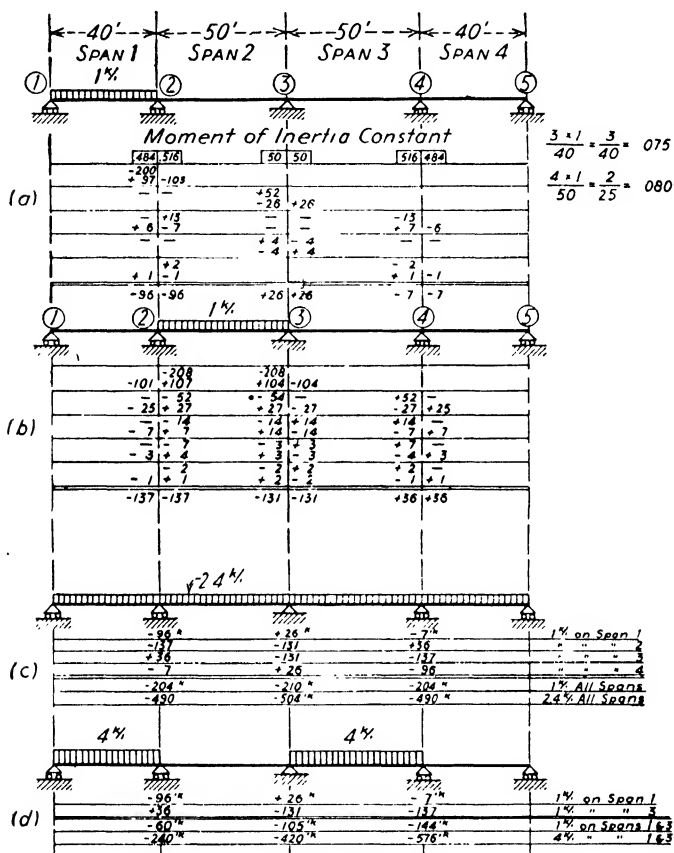 40' 50' 50' 40'
SPAN 1 SPAN 2 SPAN 3 SPAN 4
1 k/'
1 2 3 4 5
Moment of Inertia Constant
3 x 1 / 40 = 3 / 40 = 075
4 x 1 / 50 = 2 / 25 = 080
484 516 50 50 516 484
(a)
-200
+97 -103
— — +52
-26 +26
— +13 — — -13
+6 -7 — — +7 -6
— — +4 -4 — —
-4 +4
+2 -2
+1 -1 +1 -1
-96 -96 +26 +26 -7 -7
1 k/'
1 2 3 4 5
(b)
-208 -208
-101 +107 +104 -104
— -52 -54 — +52 —
-25 +27 +27 -27 -27 +25
— -14 -14 +14 +14 —
-7 +7 +14 -14 -7 +7
— -7 -3 +3 +7 —
-3 +4 +3 -3 -4 +3
— -2 -2 +2 +2 —
-1 +1 +2 -2 -1 +1
-137 -137 -131 -131 +36 +36
2.4 k/'
(c)
-96 'k +26 'k -7 'k 1 k/' on Span 1
-137 -131 +36 " " " 2
+36 -131 -137 " " " 3
-7 +26 -96 " " " 4
-204 'k -210 'k -204 'k 1 k/' All Spans
-490 -504 'k -490 'k 2.4 k/' All Spans
4 k/' 4 k/'
(d)
-96 'k +26 'k -7 'k 1 k/' on Span 1
+36 -131 -137 1 k/' " " 3
-60 'k -105 'k -144 'k 1 k/' on Spans 1 & 3
-240 'k -420 'k -576 'k 4 k/' " " 1 & 3